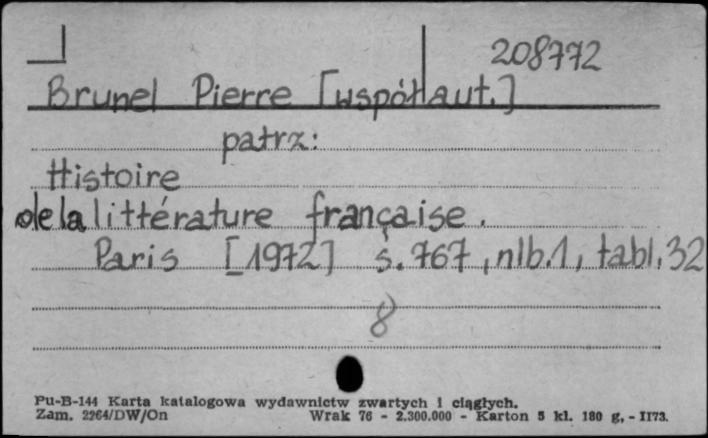 208772
Brunel Pierre [współaut.]
patrz:
Histoire
de la littérature française.
Paris [1972] s. 767, nlb. 1, tabl. 32
8
Pu-B-144 Karta katalogowa wydawnictw zwartych i ciągłych.
Zam. 2264/DW/On Wrak 76 - 2.300.000 - Karton 5 kl. 180 g, - II73.